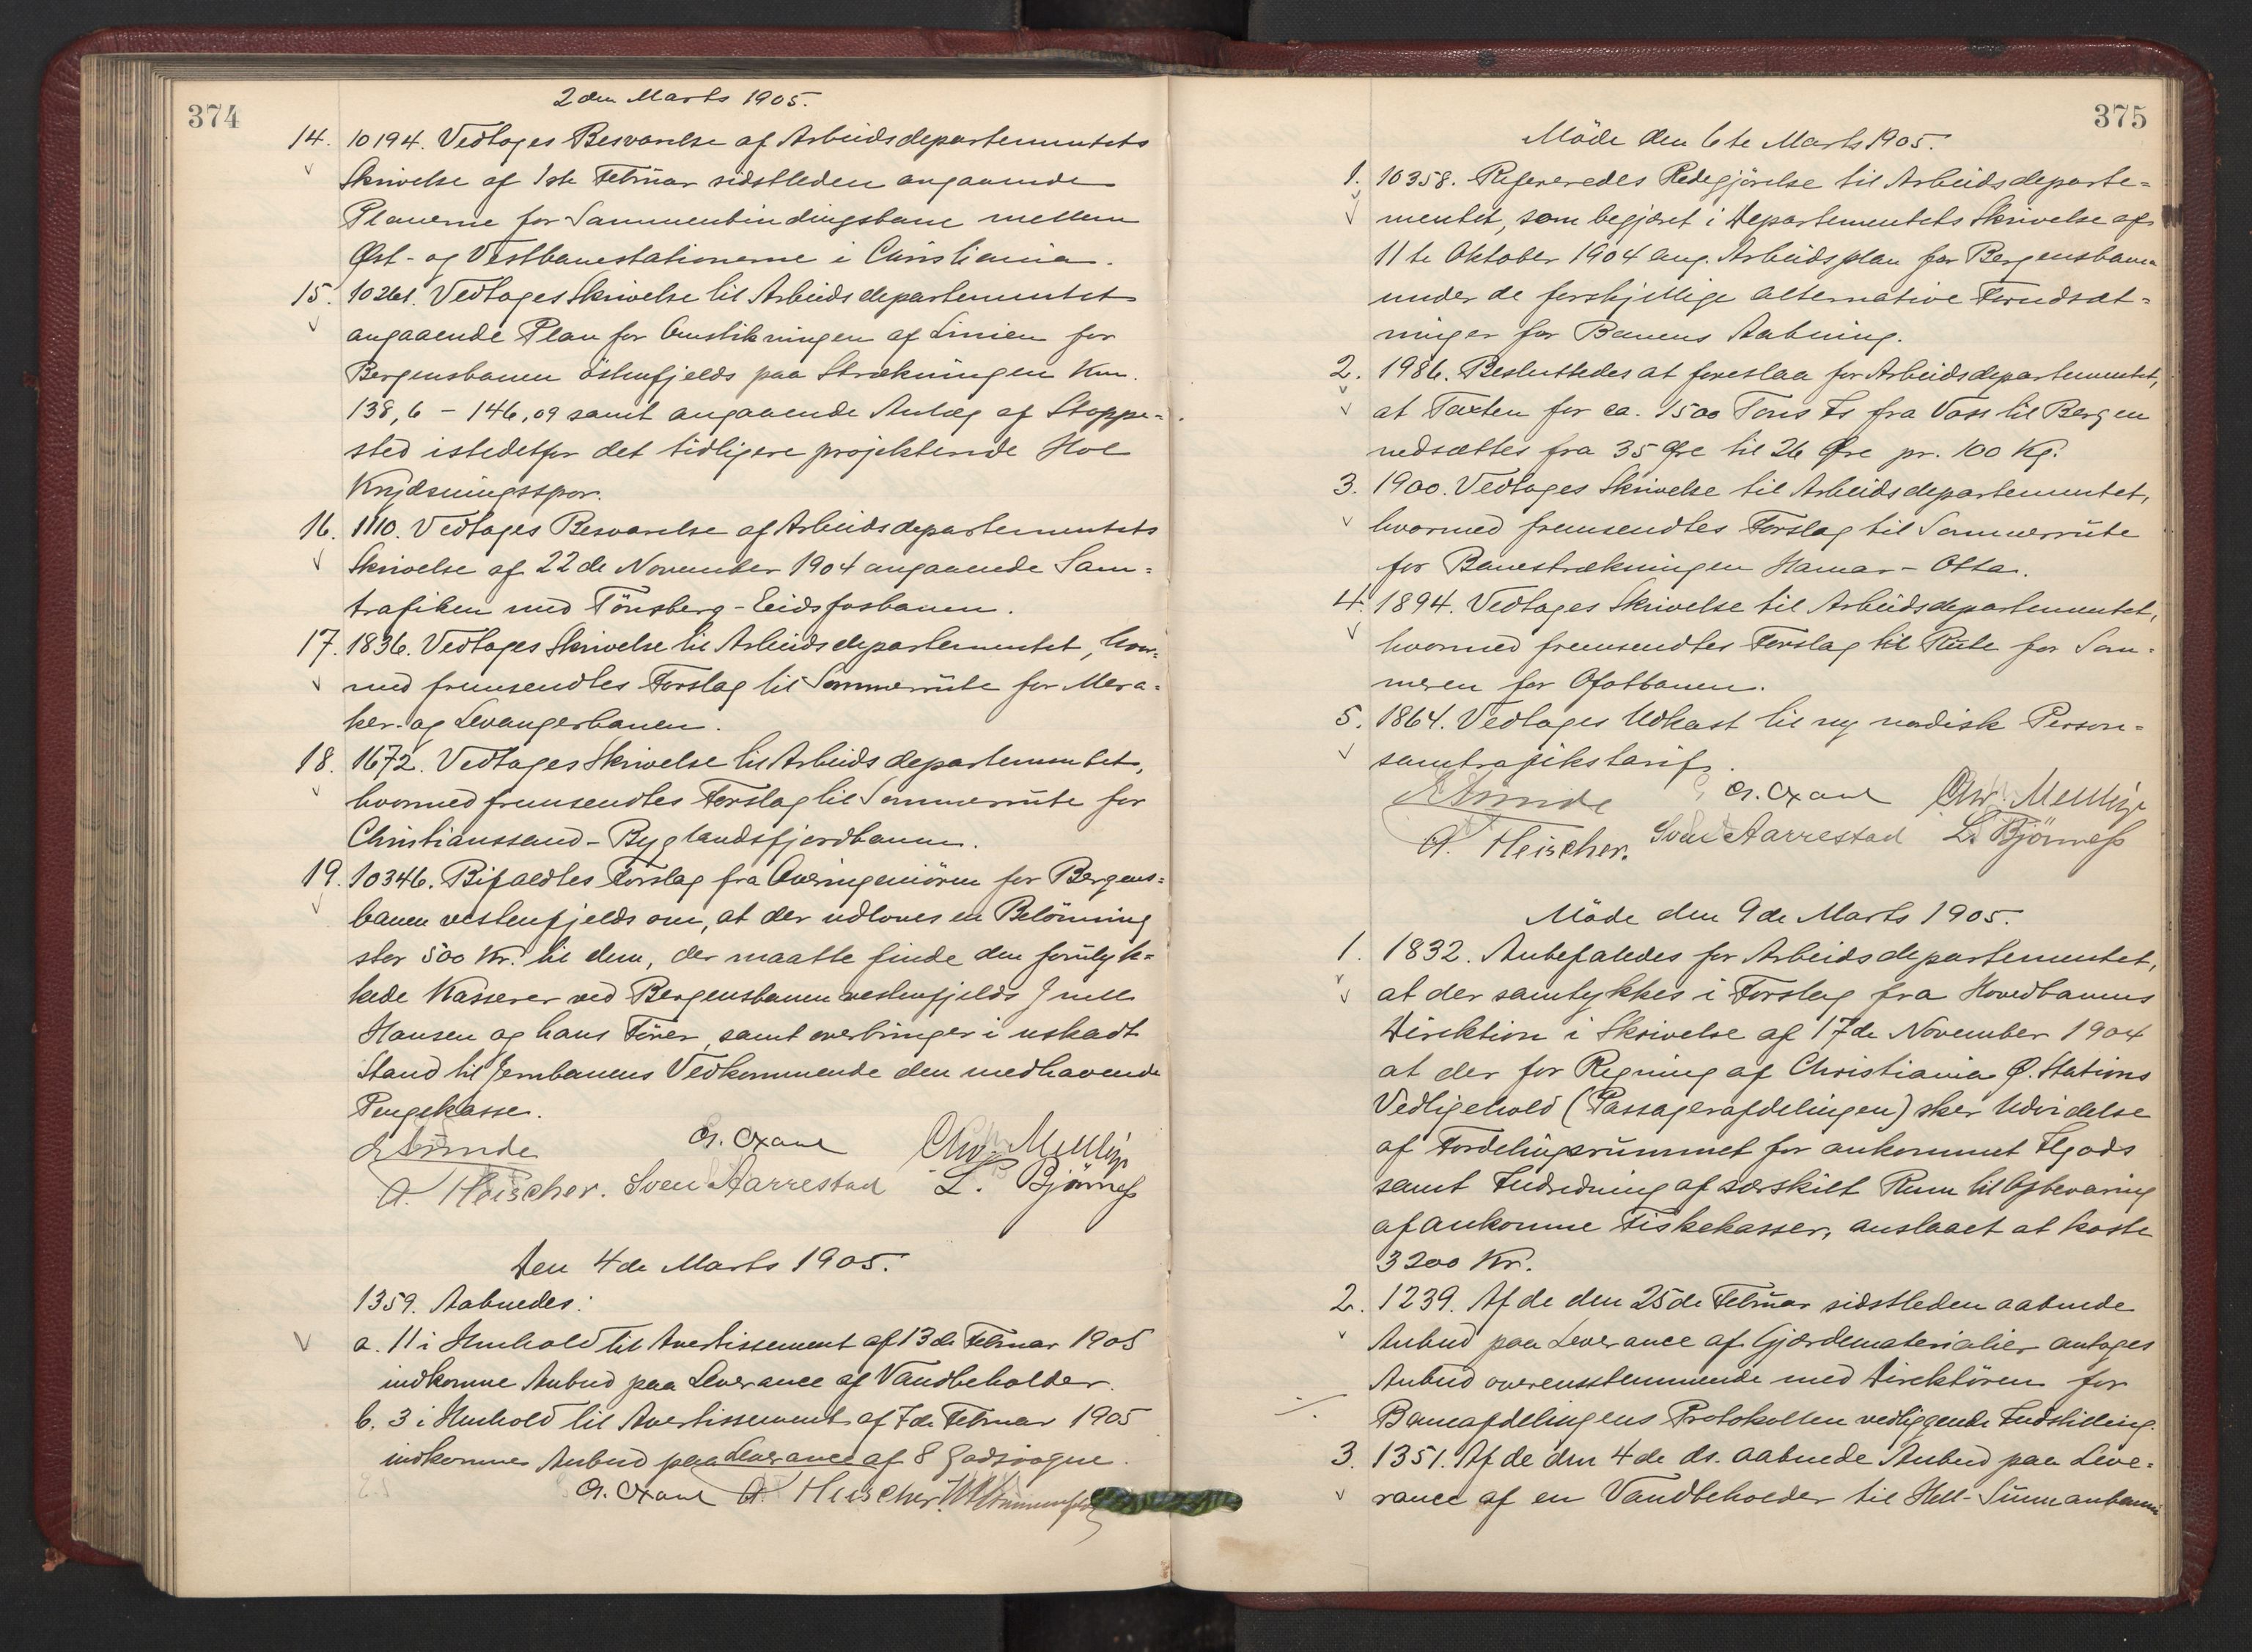 374
2den Marts 1905.
14. 10194. Vedtoges Besvarelse af Arbeidsdepartementets
Skrivelse af 1ste Februar sidstleden angaaende
Planerne for Sammenbindingsbane mellem
Øst- og Vestbanestationerne i Christiania.
15. 10261. Vedtoges Skrivelse til Arbeidsdepartementet
angaaende Plan for Omstikningen af Linien for
Bergensbanen östenfjelds paa Strækningen Km.
138,6 - 146,09 samt angaaende Anlæg af Stoppe=
sted istedetfor det tidligere projekterede Hol
Krydsningsspor.
16. 1110. Vedtoges Besvarelse af Arbeidsdepartementets
Skrivelse af 22de November 1904 angaaende Sam=
trafiken med Tönsberg-Eidsfosbanen.
17. 1836. Vedtoges Skrivelse til Arbeidsdepartementet, hvor=
med fremsendtes Forslag til Sommerrute for Mera=
ker- og Levangerbanen.
18. 1672. Vedtoges Skrivelse til Arbeidsdepartementet,
hvormed fremsendtes Forslag til Sommerrute for
Christianssand-Byglandsfjordbanen.
19. 10346. Bifaldtes Forslag fra Overingeniören for Bergens=
banen vestenfjelds om, at der udloves en Belönning
stor 500 Kr. til dem, der maatte finde den forulyk=
kede Kasserer ved Bergensbanen vestenfjelds Juell
Hansen og hans Förer, samt overbringer i uskadt
Stand til Jernbanens Vedkommende den medhavende
Pengekasse.
E Sunde G. Oxaal Chr. Mellbye
A. Fleischer. Sven Aarrestad L. Bjørness
Den 4de Marts 1905.
1359. Aabnedes:
a. 11 i Henhold til Avertissement af 13de Februar 1905
indkomne Anbud paa Leverance af Vandbeholder.
b. 3 i Henhold til Avertissement af 7de Februar 1905
indkomne Anbud paa Leverance af 8 Godsvogne.
G. Oxaal A. Fleischer.
375
Möde den 6te Marts 1905.
1. 10358. Refereredes Redegjörelse til Arbeidsdeparte=
mentet, som begjæret i Departementets Skrivelse af
11te Oktober 1904 ang. Arbeidsplan for Bergensbanen
under de forskjellige alternative Forudsæt=
ninger for Banens Aabning.
2. 1986. Besluttedes at foreslaa for Arbeidsdepartementet,
at Taxten for ca. 1500 Tons Is fra Voss til Bergen
nedsættes fra 35 Øre til 26 Øre pr. 100 Kg.
3. 1900. Vedtoges Skrivelse til Arbeidsdepartementet,
hvormed fremsendtes Forslag til Sommerrute
for Banestrækningen Hamar-Otta.
4. 1894. Vedtoges Skrivelse til Arbeidsdepartementet,
hvormed fremsendtes Forslag til Rute for Som=
meren for Ofotbanen.
5. 1864. Vedtoges Udkast til ny nordisk Person=
samtrafikstarif.
E Sunde G. Oxaal Chr. Mellbye
A. Fleischer. Sven Aarrestad L. Bjørness
Möde den 9de Marts 1905.
1. 1832. Anbefaledes for Arbeidsdepartementet,
at der samtykkes i Forslag fra Hovedbanens
Direktion i Skrivelse af 17de November 1904
at der for Regning af Christiania Ø. Stations
Vedligehold (Passagerafdelingen) sker Udvidelse
af Fordelingsrummet for ankommet Ilgods
samt Indredning af særskilt Rum til Opbevaring
af ankomne Fiskekasser, anslaaet at koste
3200 Kr.
2. 1239. Af de den 25de Februar sidstleden aabnede
Anbud paa Leverance af Gjærdematerialier antoges
Anbud overensstemmende med Direktören for
Baneafdelingens Protokollen vedliggende Indstilling.
3. 1351. Af de den 4de ds. aabnede Anbud paa Leve=
rance af en Vandbeholder til Hell-Sunnanbanen